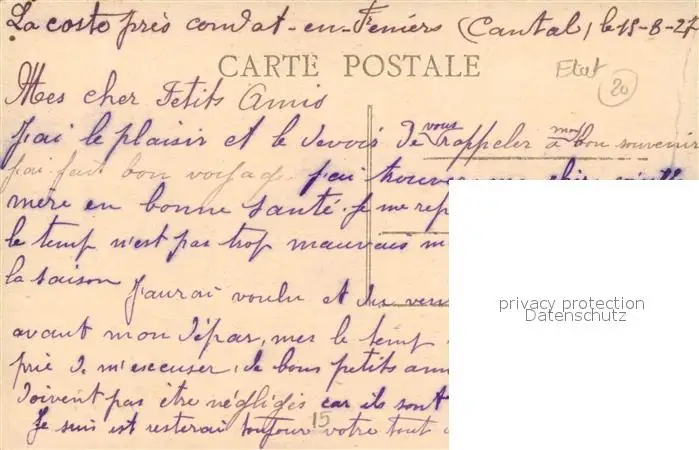 La coste près condat-en-Feniers (Cantal) le 15-8-27
CARTE POSTALE
Etat 20
Mes cher Petits Amis
J'ai le plaisir et le devois de vous rappeler a mon bon souvenir
j'ai fait bon voyage. j'ai trouver ma
mère en bonne santé. Je me rep
le temp n'est pas trop mauvais
la saison
J'aurai voulu
avant mon dépar, mes le temp
prie de m'escuser, de bons petits ami
doivent pas être négligés car ils sont
Je suis est resterai toujour votre tout
15
privacy protection
Datenschutz